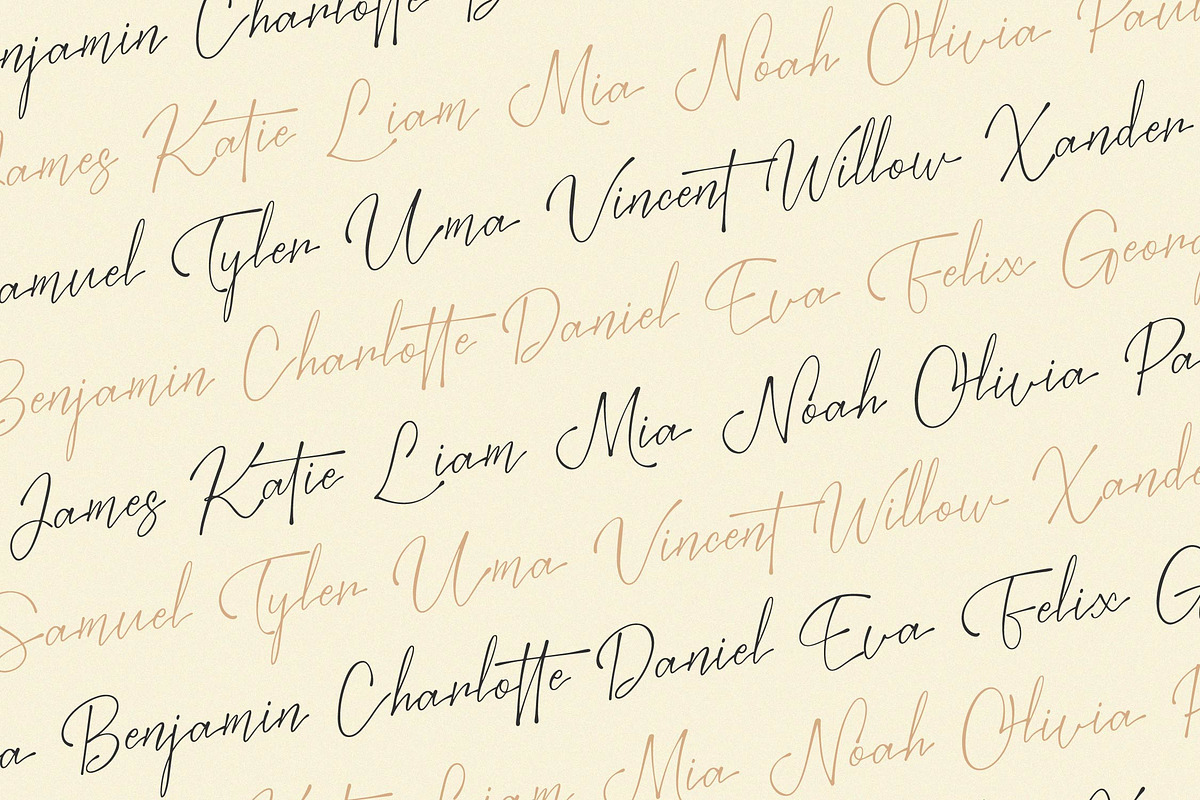 Benjamin Charlotte
James Katie Liam Mia Noah Olivia Paul
Samuel Tyler Uma Vincent Willow Xander
Benjamin Charlotte Daniel Eva Felix Georg
James Katie Liam Mia Noah Olivia Pa
Samuel Tyler Uma Vincent Willow Xande
a Benjamin Charlotte Daniel Eva Felix G
Liam Mia Noah Olivia